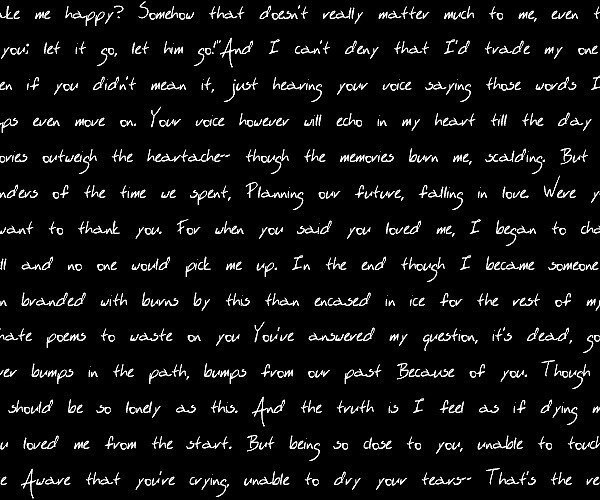 ake me happy? Somehow that doesn't really matter much to me, even t
you; let it go, let him go!"And I can't deny that I'd trade my one
en if you didn't mean it, just hearing your voice saying those words I
ps even move on. Your voice however will echo in my heart till the day
ories outweigh the heartache-- though the memories burn me, scalding. But
nders of the time we spent, Planning our future, falling in love. Were y
want to thank you. For when you said you loved me, I began to cha
ll and no one would pick me up. In the end though I became someone
n branded with burns by this than encased in ice for the rest of my
hate poems to waste on you You've answered my question, it's dead, go
ver bumps in the path, bumps from our past Because of you. Though
should be so lonely as this. And the truth is I feel as if dying m
u loved me from the start. But being so close to you, unable to touch
e Aware that you're crying, unable to dry your tears-- That's the re